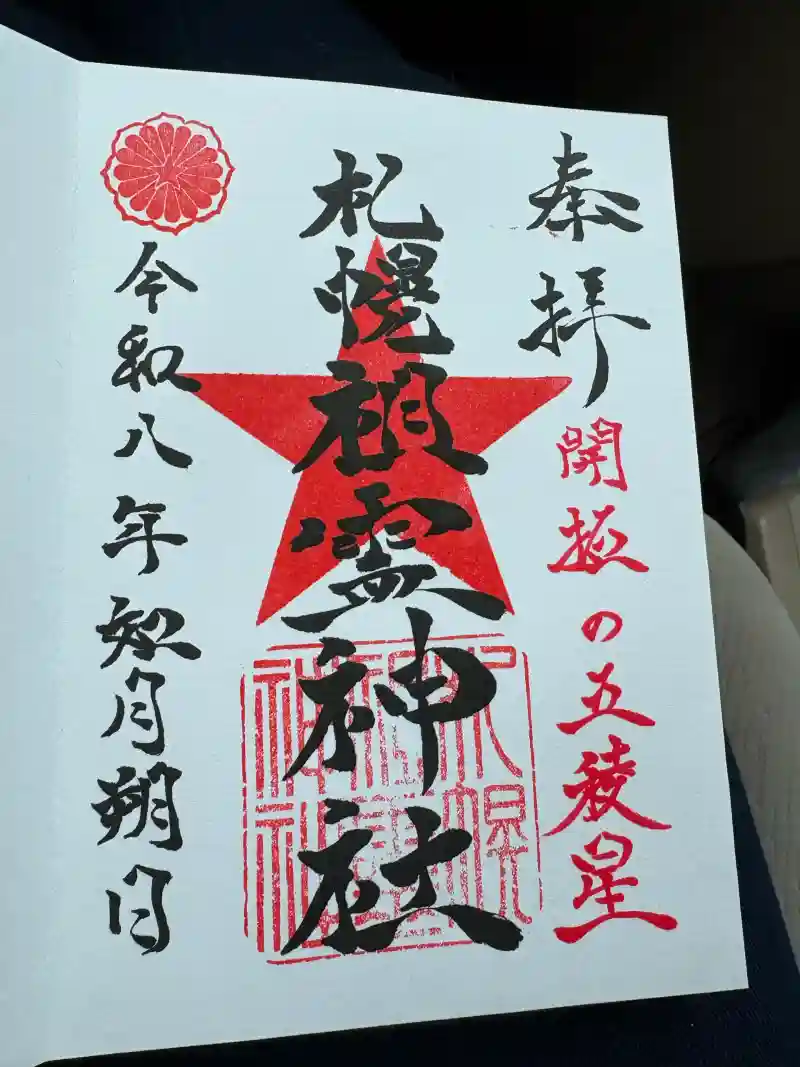 奉拝
開拓の五稜星
札幌祖霊神社
令和八年如月朔日